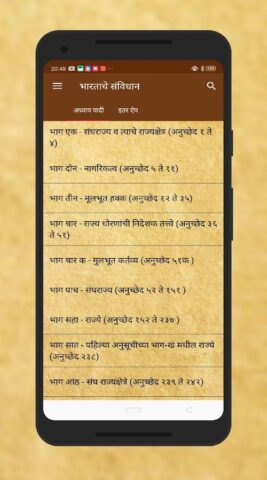 20:48
भारताचे संविधान
अध्याय यादी इतर ऐप
भाग एक - संघराज्य व त्याचे राज्यक्षेत्र (अनुच्छेद १ ते
४)
भाग दोन - नागरिकत्व (अनुच्छेद ५ ते ११)
भाग तीन - मूलभूत हक्क (अनुच्छेद १२ ते ३५)
भाग चार - राज्य धोरणांची निदेशक तत्त्वे (अनुच्छेद ३६
ते ५१)
भाग चार क - मुलभूत कर्तव्य (अनुच्छेद ५१क )
भाग पाच - संघराज्य (अनुच्छेद ५२ ते १५१ )
भाग सहा - राज्ये (अनुच्छेद १५२ ते २३७ )
भाग सात - पहिल्या अनुसूचीच्या भाग-ख मधील राज्ये
(अनुच्छेद २३८)
भाग आठ - संघ राज्यक्षेत्रे (अनुच्छेद २३९ ते २४२)